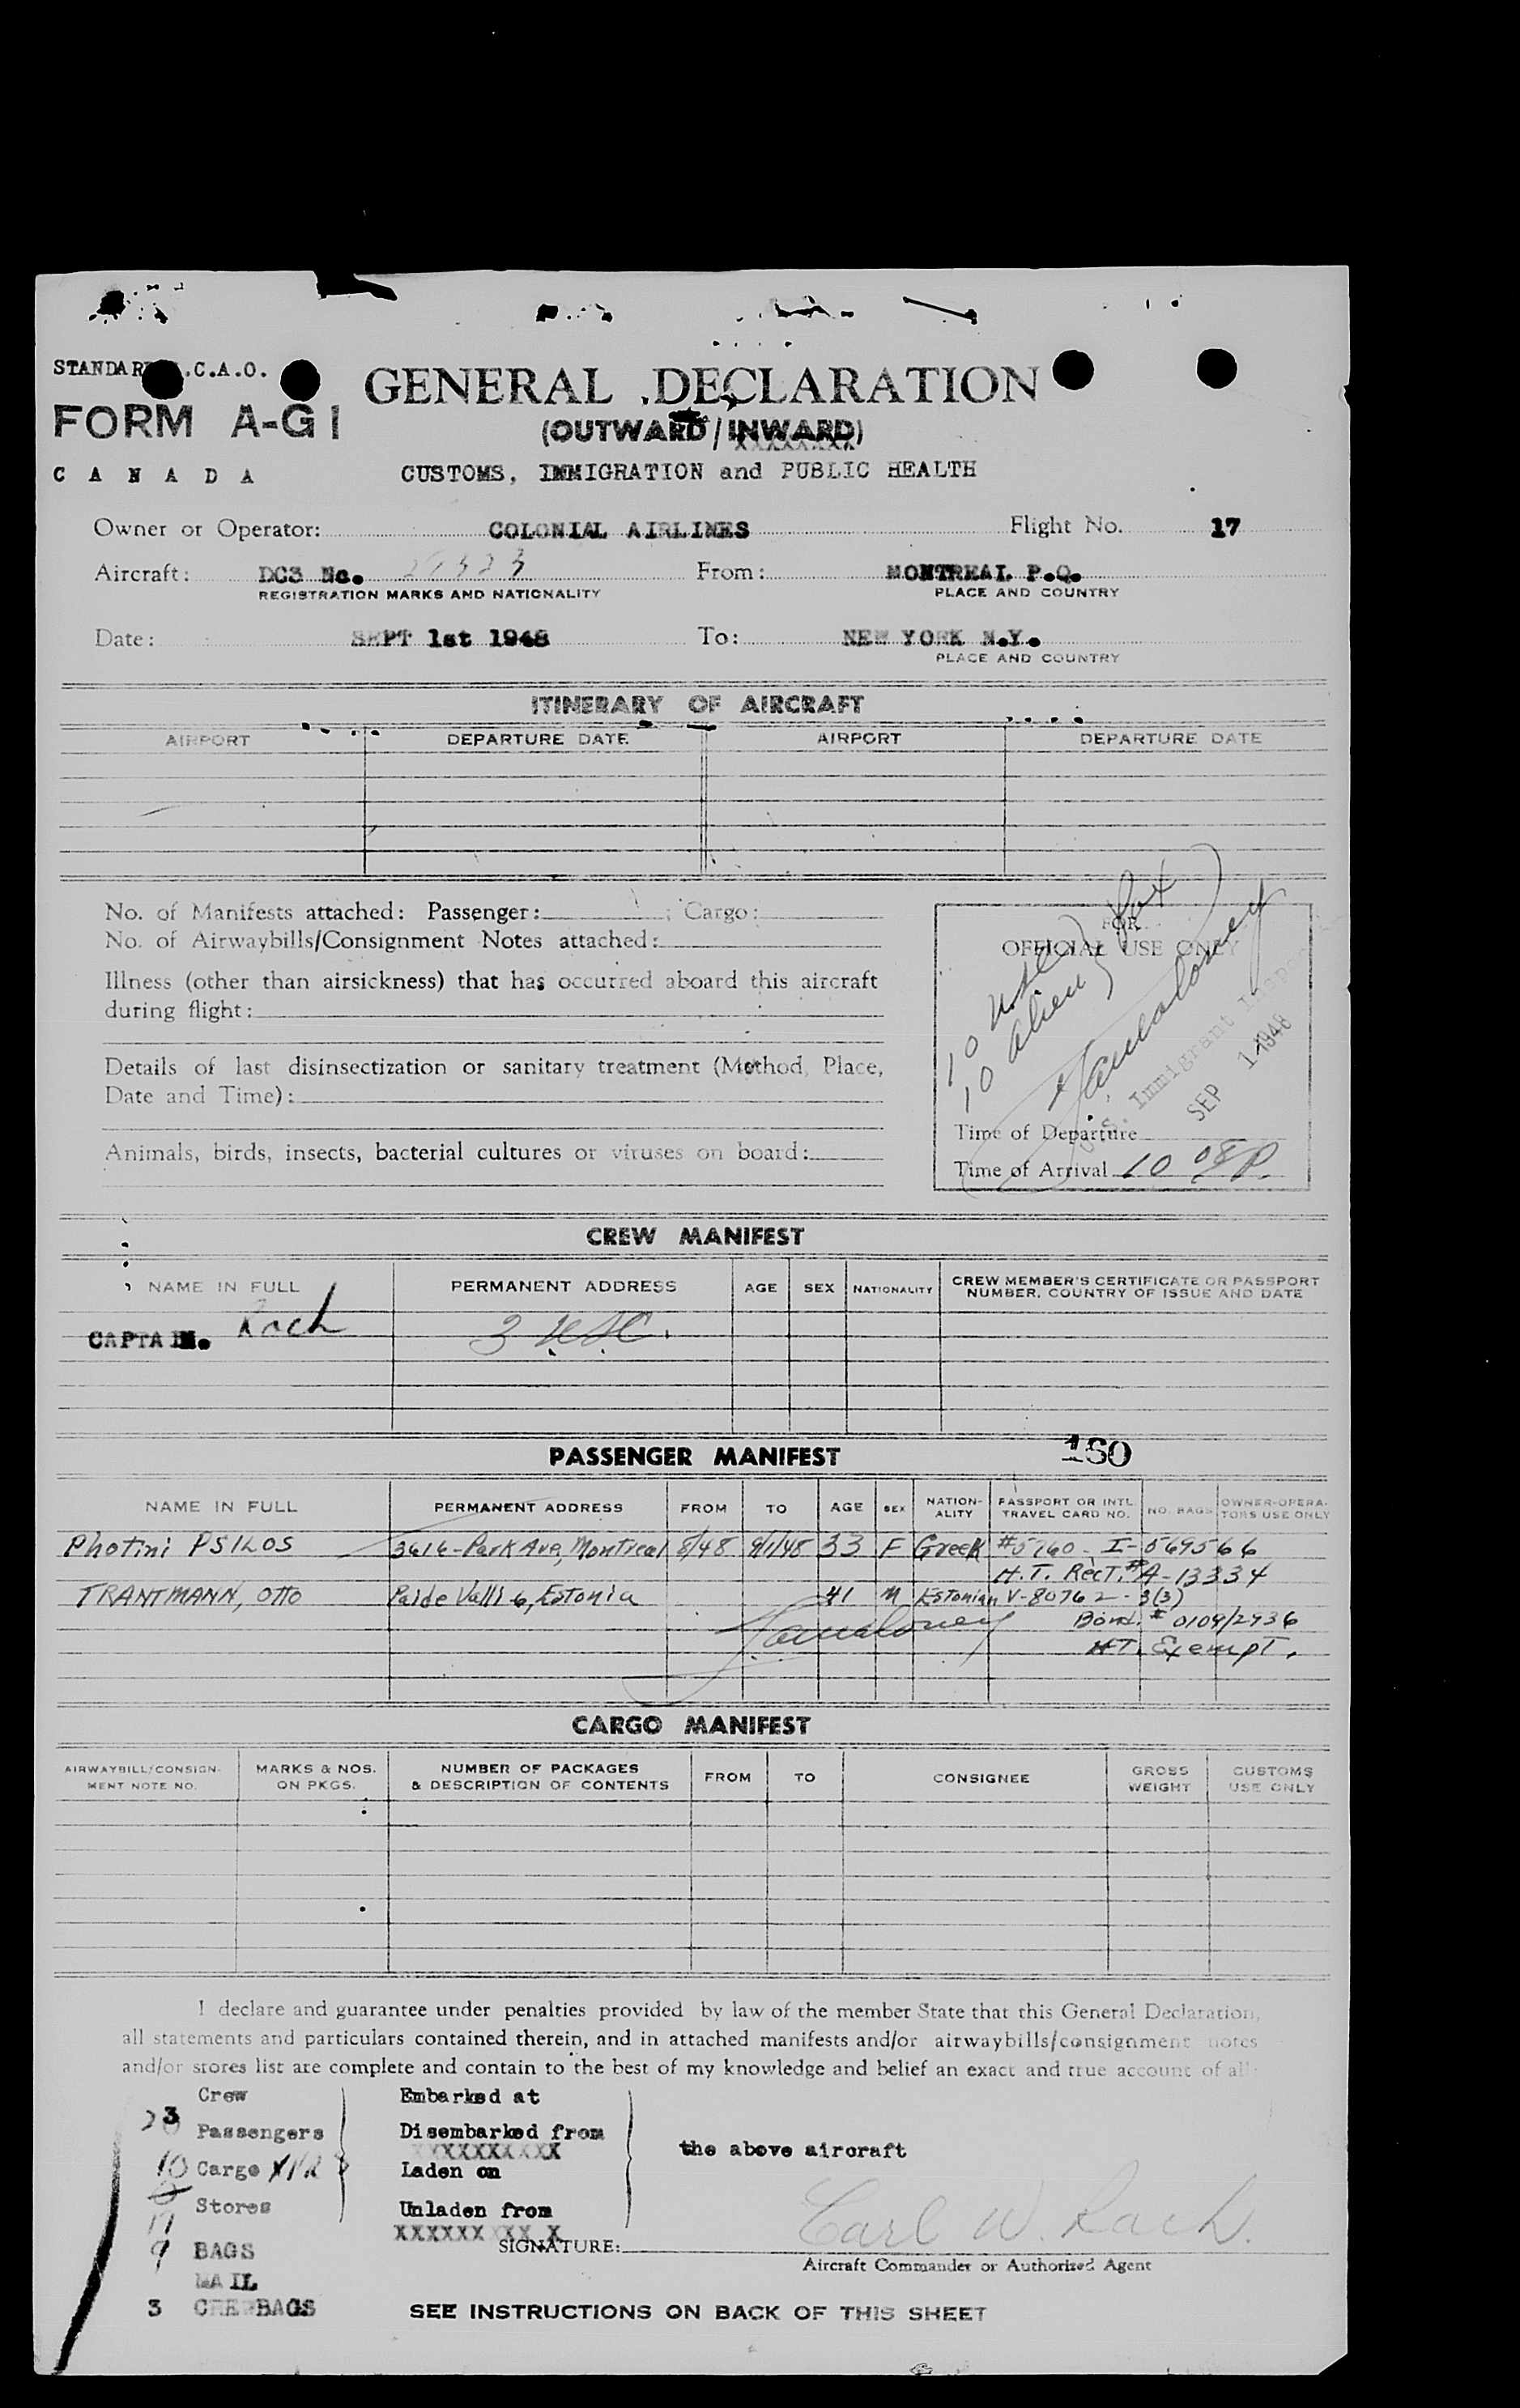 STANDARD I.C.A.O.
FORM A-G1
CANADA
GENERAL DECLARATION
(OUTWARD/INWARD)
CUSTOMS, IMMIGRATION and PUBLIC HEALTH
Owner or Operator: COLONIAL AIRLINES Flight No. 17
Aircraft: DC3 No. From: MONTREAL P.Q.
REGISTRATION MARKS AND NATIONALITY PLACE AND COUNTRY
Date: SEPT 1st 1948 To: NEW YORK N.Y.
PLACE AND COUNTRY
ITINERARY OF AIRCRAFT
AIRPORT DEPARTURE DATE AIRPORT DEPARTURE DATE
No. of Manifests attached: Passenger: ; Cargo:
No. of Airwaybills/Consignment Notes attached:
Illness (other than airsickness) that has occurred aboard this aircraft
during flight:
Details of last disinsectization or sanitary treatment (Method, Place,
Date and Time):
Animals, birds, insects, bacterial cultures or viruses on board:
FOR
OFFICIAL USE ONLY
10 USC
10 alien
U.S. Immigrant Inspec
SEP 1 1948
Time of Departure
Time of Arrival 10 08 P.
CREW MANIFEST
NAME IN FULL PERMANENT ADDRESS AGE SEX NATIONALITY CREW MEMBER'S CERTIFICATE OR PASSPORT
NUMBER, COUNTRY OF ISSUE AND DATE
CAPTAIN. Rach 3 USC.
PASSENGER MANIFEST 160
NAME IN FULL PERMANENT ADDRESS FROM TO AGE SEX NATION-ALITY PASSPORT OR INTL. TRAVEL CARD NO. NO. BAGS OWNER-OPERA-TORS USE ONLY
Photini PSILOS 3616-Park Ave, Montreal 8/48 9/1/48 33 F Greek #5760 - I-0569566
H.T. Rect. #A-13334
TRANTMANN, Otto Paide Valli 6, Estonia 41 M Estonian V-80762-3(3)
Bond. # 0109/2936
HT. Exempt.
CARGO MANIFEST
AIRWAYBILL/CONSIGN-MENT NOTE NO. MARKS & NOS. ON PKGS. NUMBER OF PACKAGES & DESCRIPTION OF CONTENTS FROM TO CONSIGNEE GROSS WEIGHT CUSTOMS USE ONLY
I declare and guarantee under penalties provided by law of the member State that this General Declaration,
all statements and particulars contained therein, and in attached manifests and/or airwaybills/consignment notes
and/or stores list are complete and contain to the best of my knowledge and belief an exact and true account of all
3 Crew Embarked at
20 Passengers Disembarked from
the above aircraft
10 Cargo Laden on
Stores Unladen from
17
SIGNATURE: Carl W. Rach.
Aircraft Commander or Authorized Agent
9 BAGS
MAIL
3 CREWBAGS
SEE INSTRUCTIONS ON BACK OF THIS SHEET